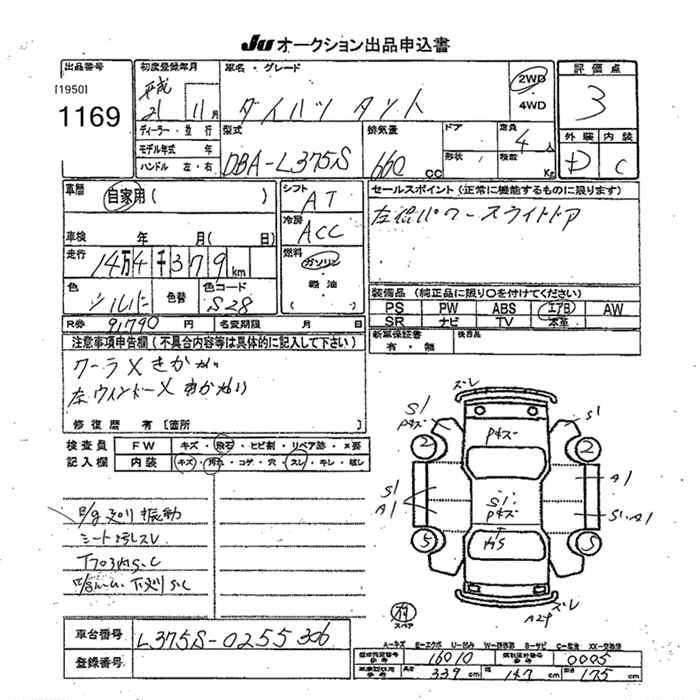 JU オークション出品申込書
出品番号 初度登録年月 車名・グレード 2WD ・ 4WD 評価点
[1950] 平成 21 11月 ダイハツ タント 3
1169
ディーラー・並行 型式 排気量 ドア 定員 4人 外装 内装
モデル年式 年 DBA-L375S 660 CC 形状 積載 Kg D C
ハンドル 左・右
車歴 自家用 ( ) シフト AT セールスポイント (正常に機能するものに限ります)
冷房 ACC 左 パワースライドドア
車検 年 月( 日)
走行 14万4千379 km 燃料 ガソリン ・ 軽油 ・ ( )
色 シルバー 色替 色コード S28
装備品 (純正品に限り○を付けてください)
PS PW ABS エアB AW
SR ナビ TV 本革
R券 9,790 円 名変期限 月 日 新車保証書 有・無 後日品
注意事項申告欄 (不具合内容等は具体的に記入して下さい)
クーラー×きかない
左ウィンドー×
修復歴 有 [箇所 ]
検査員 FW キズ・飛石・ヒビ割・リペア跡・×要
記入欄 内装 キズ・汚れ・コゲ・穴・スレ・キレ・破レ
E/g 振動
シート スレ
ズレ
S1 Pキズ Pキズ S1
2 2
S1 A1 S1 Pキズ A1 S1.A1
5 5
ズレ
スペア
A-キズ E-エクボ U-凹み W-修理跡 S-サビ C-腐蝕 XX-交換済
車台番号 L375S-0255306
登録番号
型式指定番号 参考 16010 類別区分番号 参考 0005
長さ 339 cm 幅 147 cm 高さ 175 cm